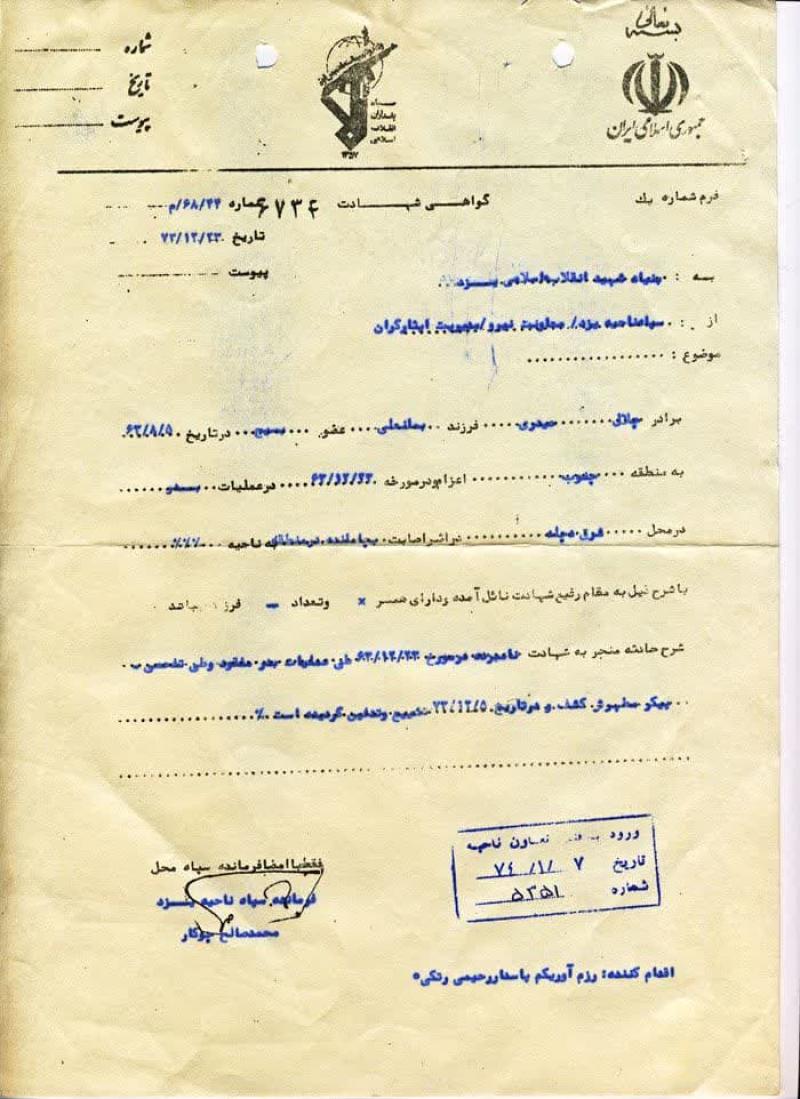 بسمه تعالی
جمهوری اسلامی ایران
سپاه
پاسداران
انقلاب
اسلامی
۱۳۵۷
شماره
تاریخ
پیوست
فرم شماره یك
گواهی شهادت
شماره ۶۸/۴۴/م
۶۷۳۴
تاریخ ۷۳/۱۲/۲۳
پیوست
به : بنیاد شهید انقلاب اسلامی یزد
از : سپاه ناحیه یزد/ معاونت نیرو/ مدیریت ایثارگران
موضوع :
برادر جلالی حیدری فرزند بمانعلی عضو بسیج درتاریخ ۶۳/۸/۵
به منطقه جنوب اعزام ودرمورخه ۶۳/۱۲/۲۳ درعملیات بدر
درمحل شرق دجله دراثراصابت به ناحیه ٪٪٪
باشرح ذیل به مقام رفیع شهادت نائل آمده ودارای همسر × وتعداد – فرزند میباشد
شرح حادثه منجر به شهادت نامبرده درمورخ ۶۳/۱۲/۲۳ طی عملیات بدر مفقود وطی تفحص
پیکر مطهرش کشف و درتاریخ ۷۳/۱۲/۵ تشییع وتدفین گردیده است ٪
ورود تعاون ناحیه
تاریخ ۷ /۱/ ۷۴
شماره ۵۲۵۱
فقط با امضا فرمانده سپاه محل
فرمانده سپاه ناحیه یزد
محمدصالح جوکار
اقدام کننده: رزم آوریکم پاسداررحیمی رتکی